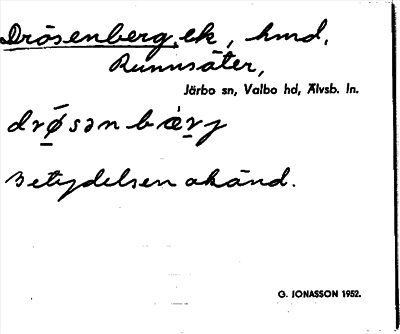 Drösenberg, ek, hmd,
Runnsäter,
Järbo sn, Valbo hd, Älvsb. ln.
drø̄sənbæ̀rj
Betydelsen okänd.
G. JONASSON 1952.